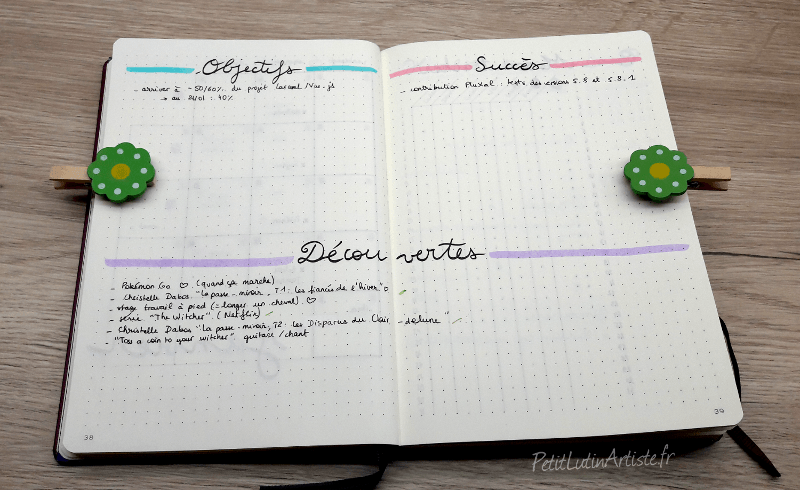 Objectifs
- arriver à ~50/60% du projet Laravel/Vue.js
→ au 24/01 : 40%
Succès
- contribution Pluxml : tests des versions 5.8 et 5.8.1
Découvertes
Pokémon Go ♡ (quand ça marche)
- Christelle Dabos "La passe-miroir, T1: les fiancés de l'hiver"
- stage travail à pied (= longer un cheval) ♡
- série "The Witcher" (Netflix) ✓
- Christelle Dabos "La passe-miroir, T2: les Disparus du Clair-delune" ✓
- "Toss a coin to your witcher" guitare/chant
38
39
PetitLutinArtiste.fr